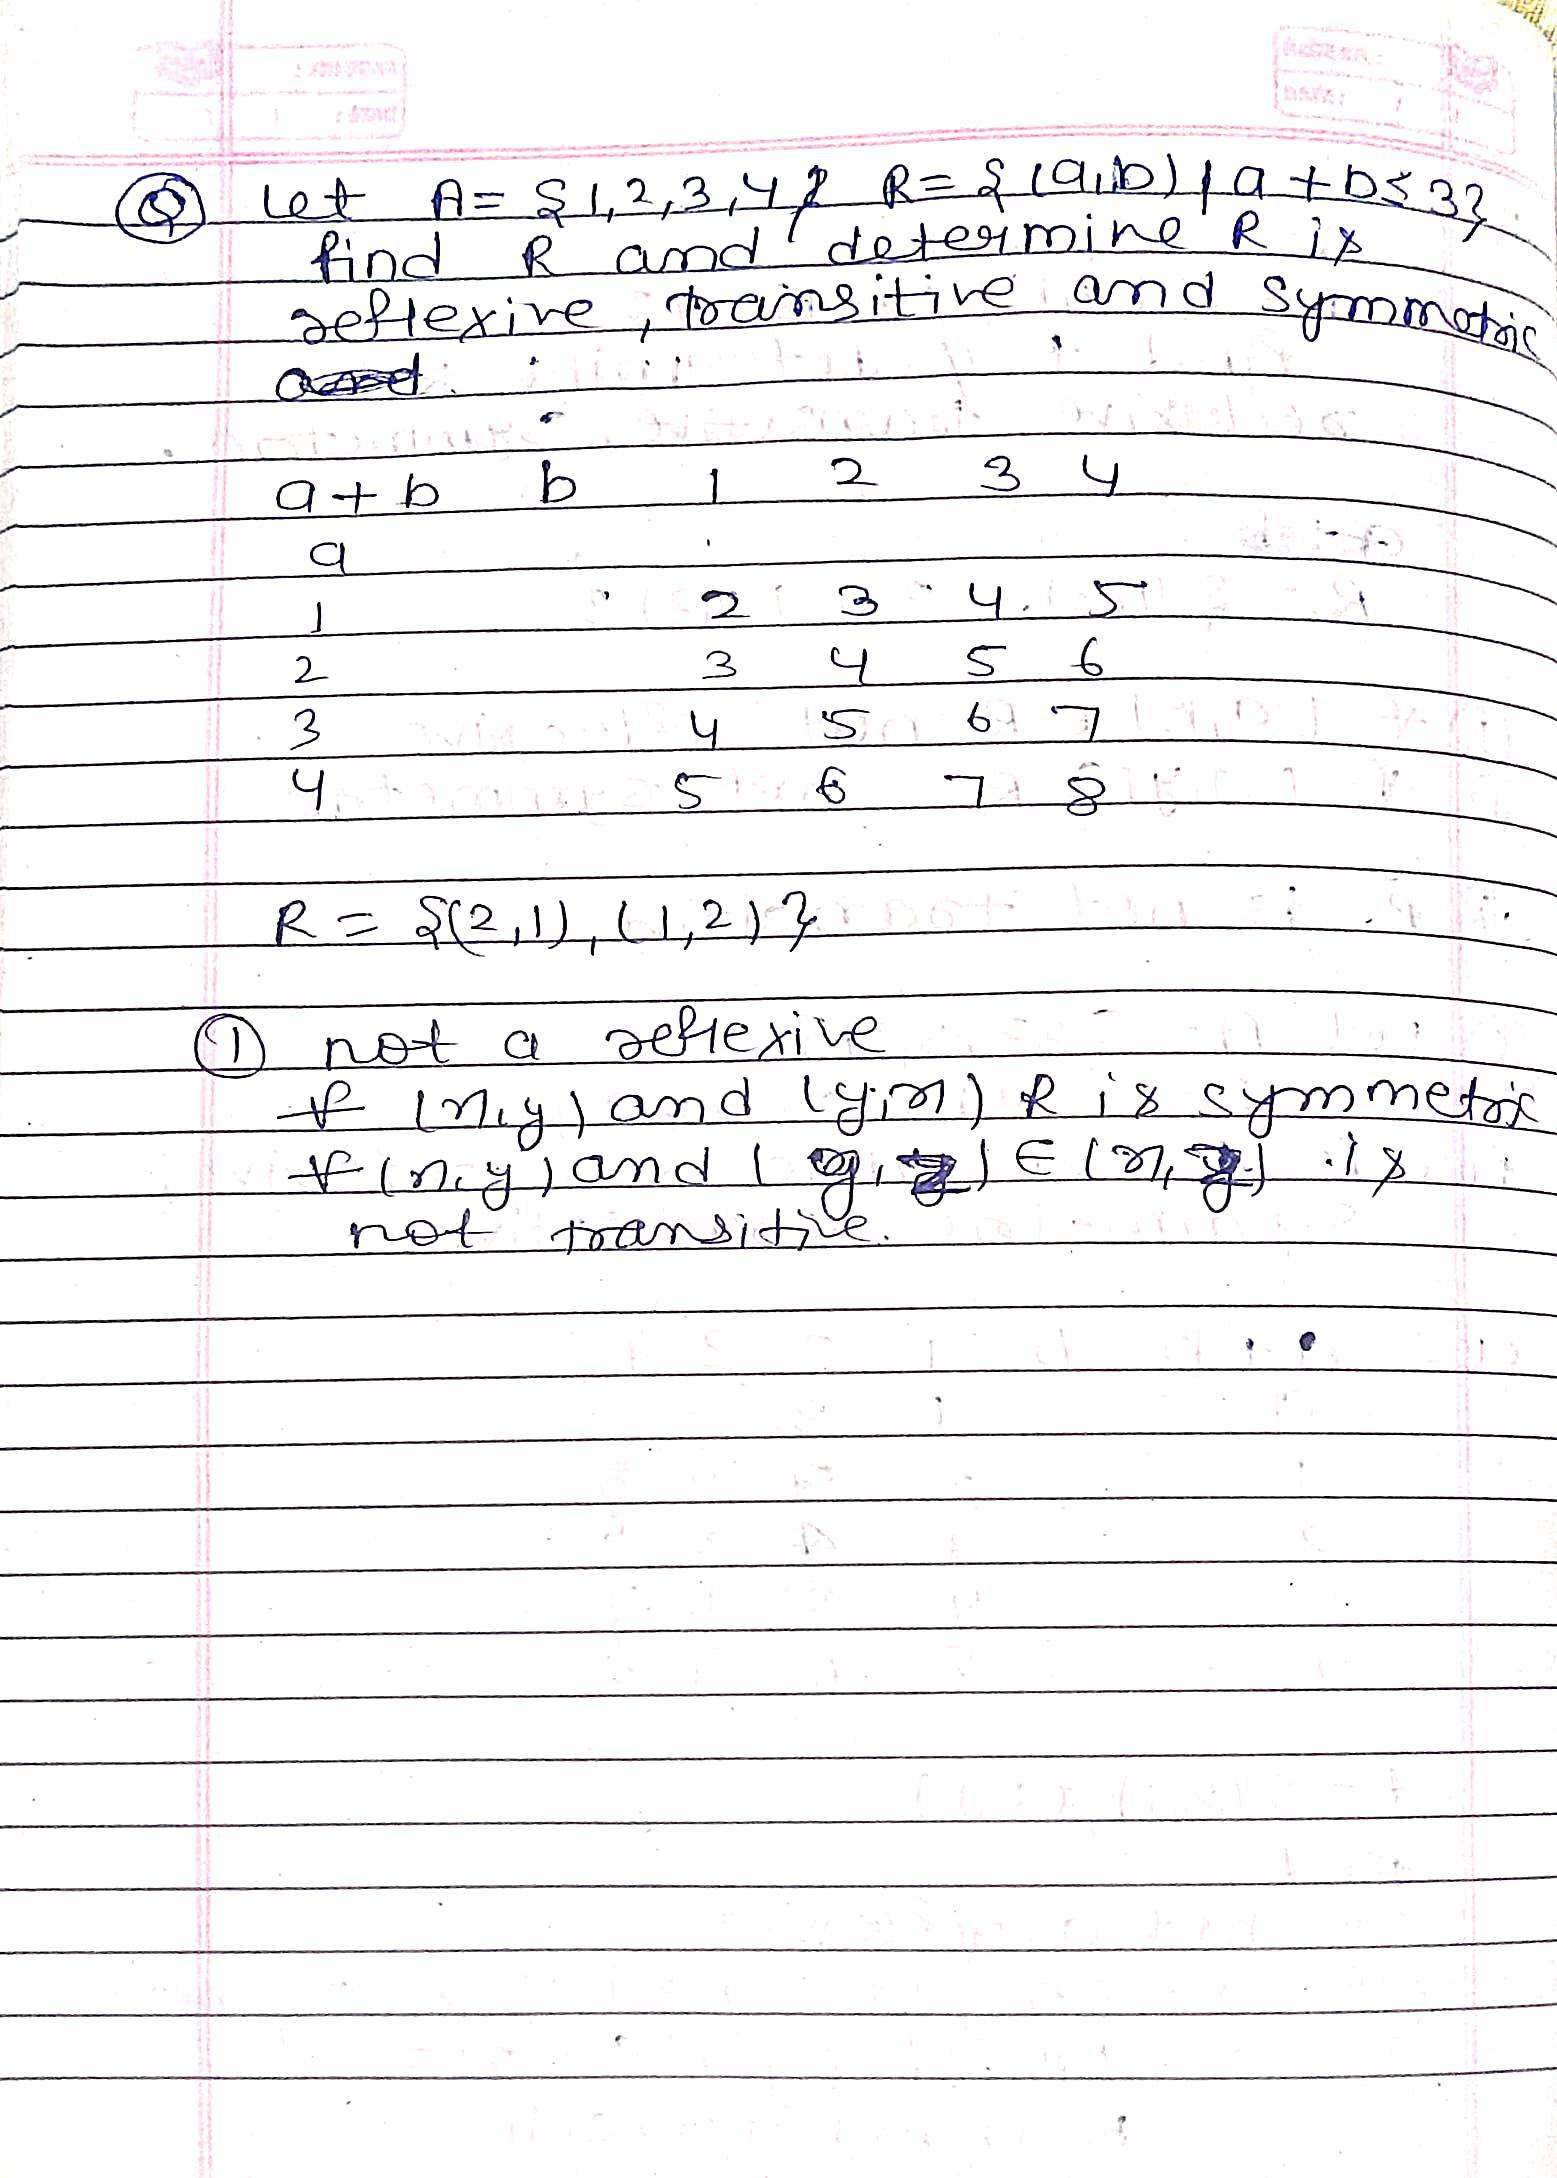 Q let A = {1,2,3,4} R = {(a,b) / a + b ≤ 3}
find R and determine R is
reflexive, transitive and symmetric
a+b b 1 2 3 4
a
1 2 3 4 5
2 3 4 5 6
3 4 5 6 7
4 5 6 7 8
R = {(2,1), (1,2)}
① not a reflexive
if (x,y) and (y,x) R is symmetric
if (x,y) and (y,z) ∈ (x,z) is
not transitive.